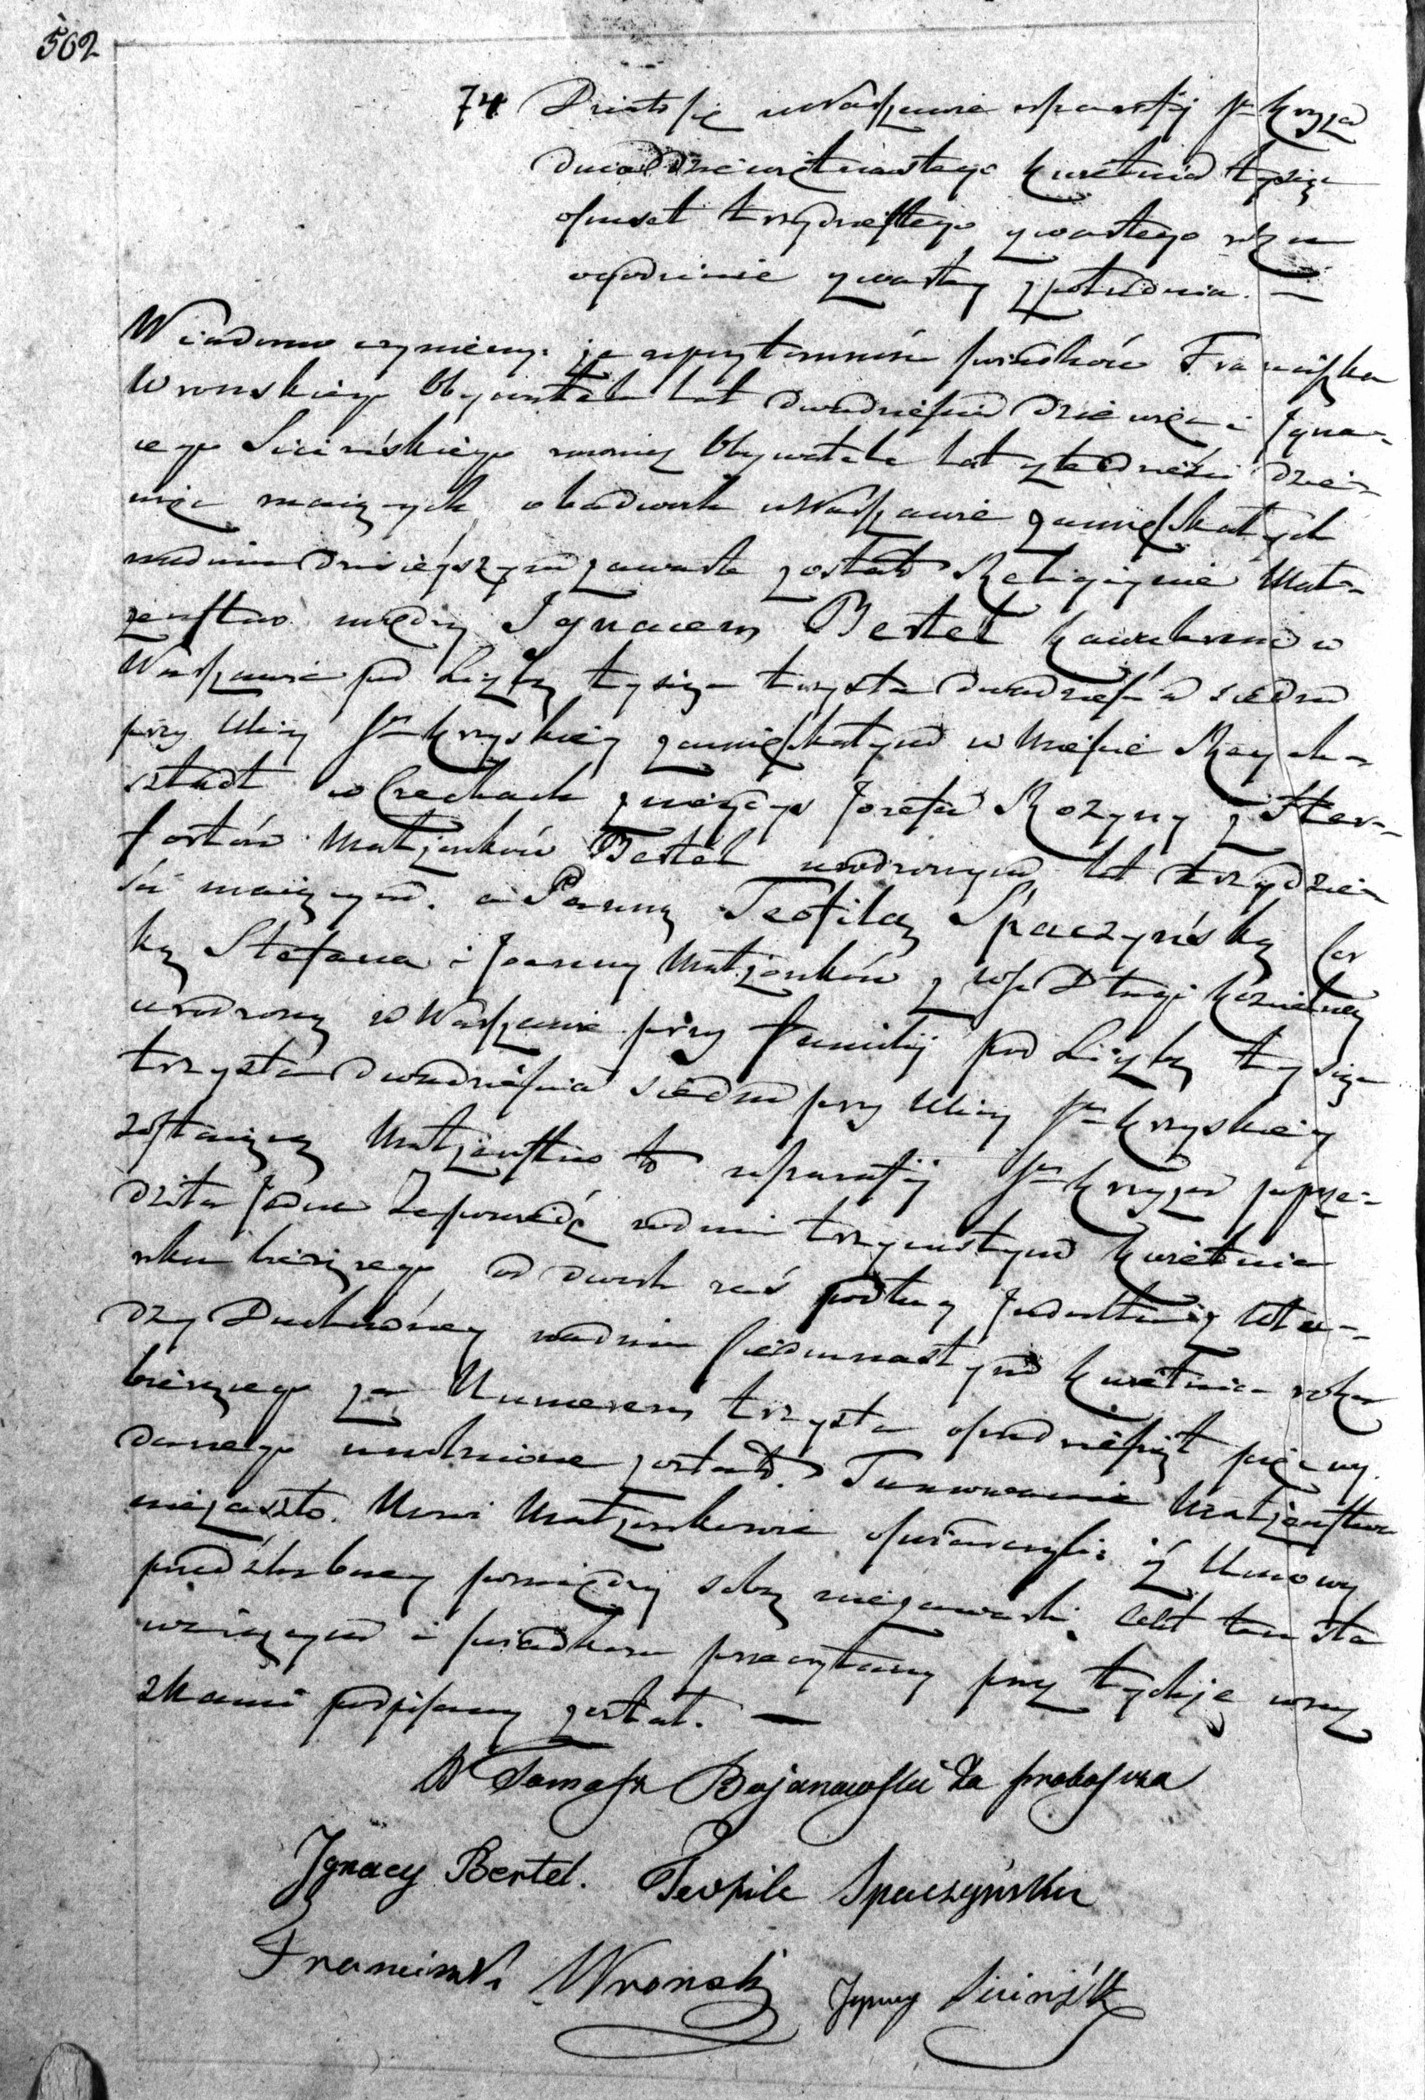 502
74 Działo się w Warszawie w parafij Sgo Krzyża
dnia Dziewiętnastego Kwietnia tysiąc
ośmset trzydziestego czwartego roku
o godzinie czwartej z południa. —
Wiadomo czyniemy: że w przytomności świadków Franciszka
Wronskiego Obywatela lat dwadzieścia dziewięć i Igna-
cego Sicińskiego rownież Obywatela lat czterdzieści dzie-
więć maiących obadwoch w Warszawie zamięszkałych
na dniu dzisiéyszym zawarte zostało Religiynie Mał-
żeństwo między Ignacem Bertel Kawalerem w
Warszawie pod Liczbą tysiąc trzysta dwadzieścia siedm
przy Ulicy Sto Krzyskiey zamięszkałym w Mieście Reych-
sztadt w Czechach z niegdys Jozefa Rozyny z Her-
fortów Małżonków Bertel urodzonym lat trzydzie-
ści maiącym. a Panną Teofilą Spaczyńską Cor
ką Stefana i Joanny Małżonków z wsi Długi Kościelney
urodzoną w Warszawie przy Familij pod Liczbą tysiąc
trzysta dwadzieścia siedm przy Ulicy Sto Krzyskiey
zostaiącą Małżeństwo to w parafij Sgo Krzyża poprze-
dziła Jedna Zapowiedź w dniu trzynastym Kwietnia
roku bieżącego od dwoch zaś podług Indultu z Wła-
dzy Duchowney na dniu siedmnastym Kwietnia roku
bieżącego za Numerem trzysta ośmdziesiąt pięć wy
danego uwolnione zostało. Tamowanie Małżeństwa
niezaszło. Nowi Małżonkowie oświadczyli: iż Umowy
przedślubney pomiędzy sobą niezawarli. Akt ten sta
waiącym i świadkom przeczytany przy tychże
zkami podpisany został. —
X Tomasz Bojanowski Za proboszcza
Jgnacy Bertel. Teofila Spaczyńska
Franciszek Wronski Jgnacy Siciński